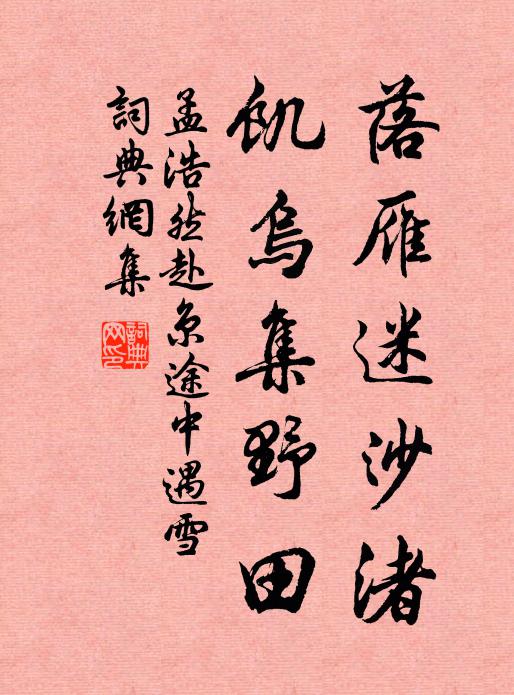 落雁迷沙渚
飢烏集野田
孟浩然赴京途中遇雪
詞典網集
詞典
网印